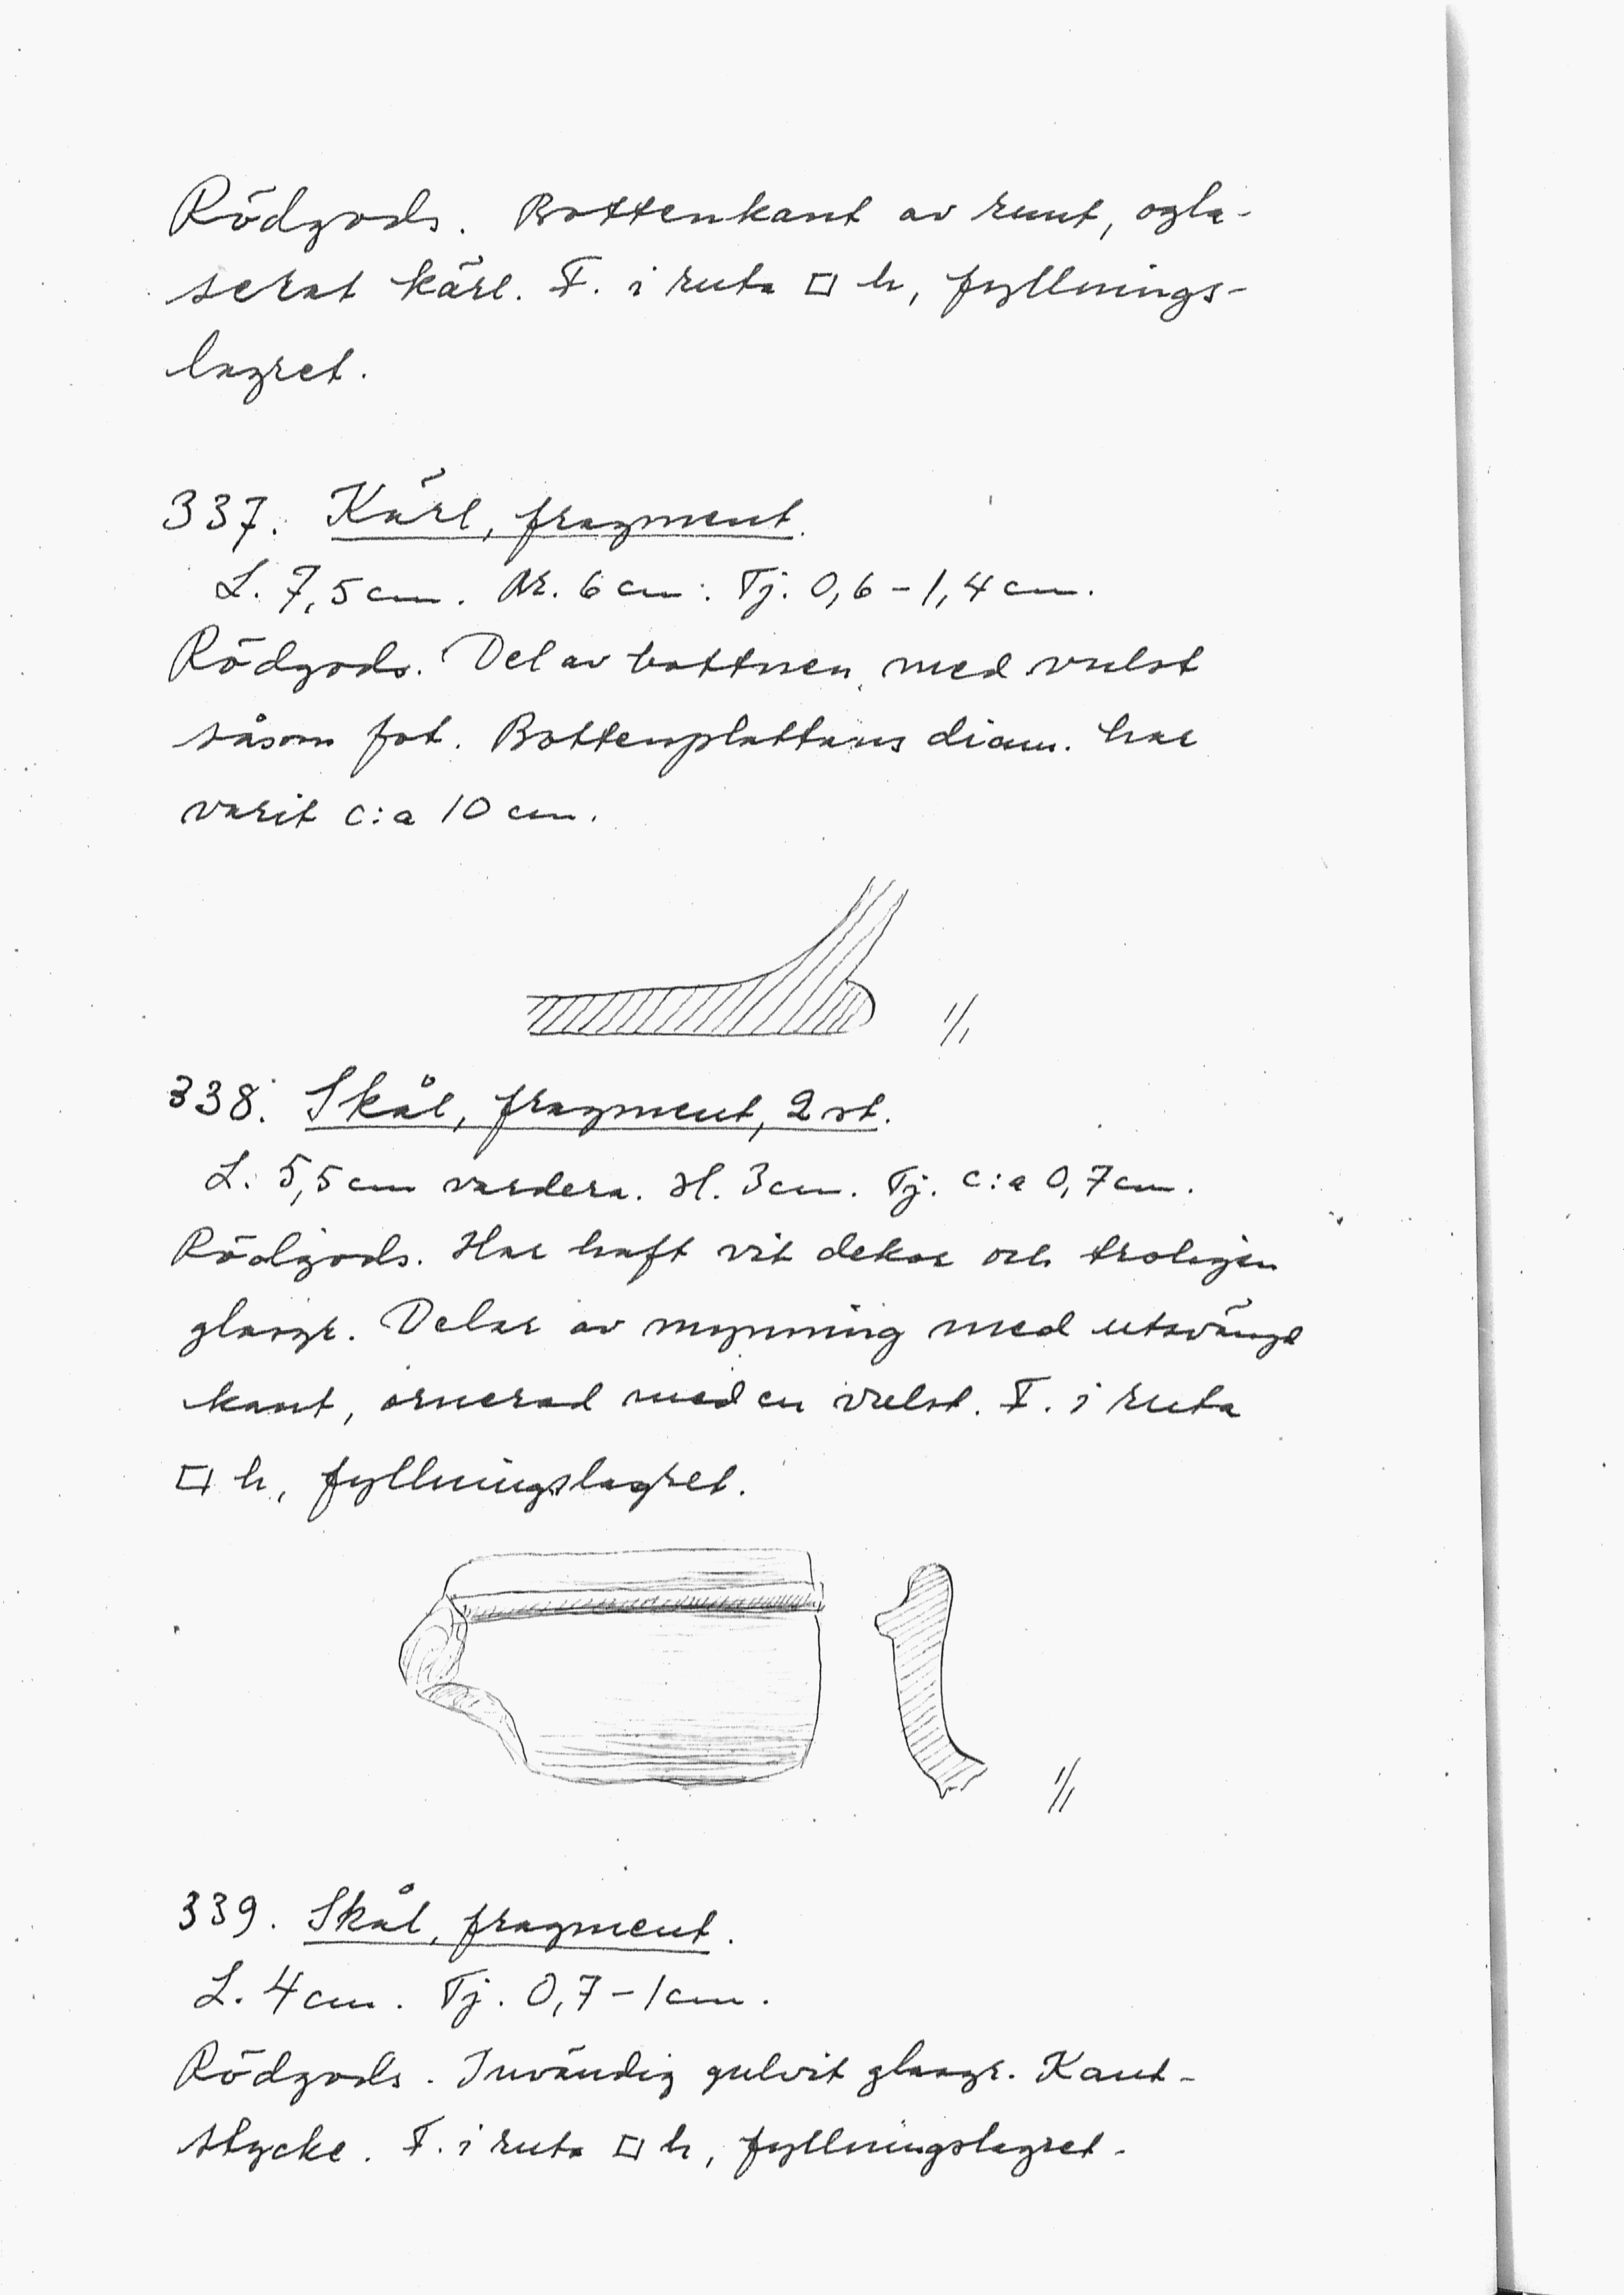 Rödgods. Bottenkant av runt, ogla-
serat kärl. F. i ruta □ h, fyllnings-
lagret.
337. Kärl, fragment.
L. 7,5 cm. Br. 6 cm. Tj. 0,6 - 1,4 cm.
Rödgods. Del av bottnen, med vulst
såsom fot. Bottenplattans diam. har
varit c:a 10 cm.
1/1
338. Skål, fragment, 2 st.
L. 5,5 cm vardera. H. 3 cm. Tj. c:a 0,7 cm.
Rödgods. Har haft vit dekor och troligen
glasyr. Delar av mynning med utsvängd
kant, ornerad med en vulst. F. i ruta
□ h, fyllningslagret.
1/1
339. Skål, fragment.
L. 4 cm. Tj. 0,7 - 1 cm.
Rödgods. Invändig gulvit glasyr. Kant-
stycke. F. i ruta □ h, fyllningslagret.